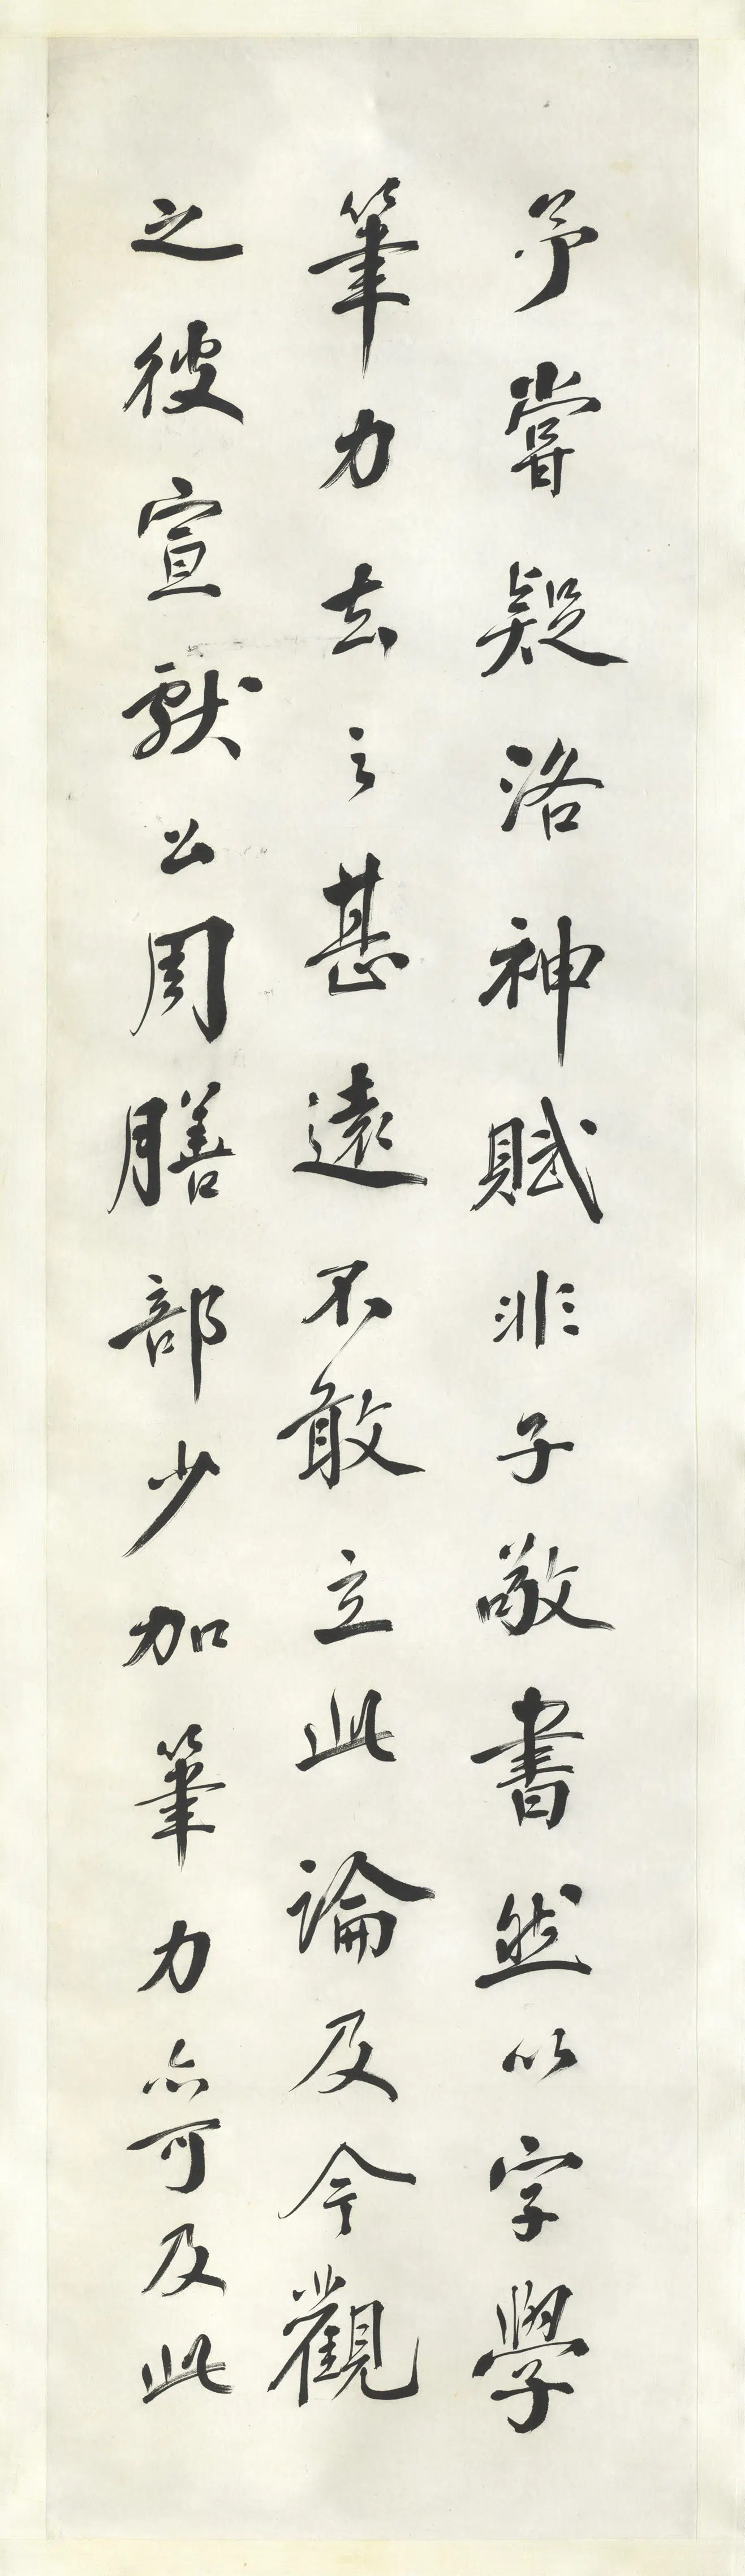 予嘗疑洛神賦非子敬書然以字學
筆力去之甚遠不敢立此論及今觀
之彼宣獻公周膳部少加筆力亦可及此